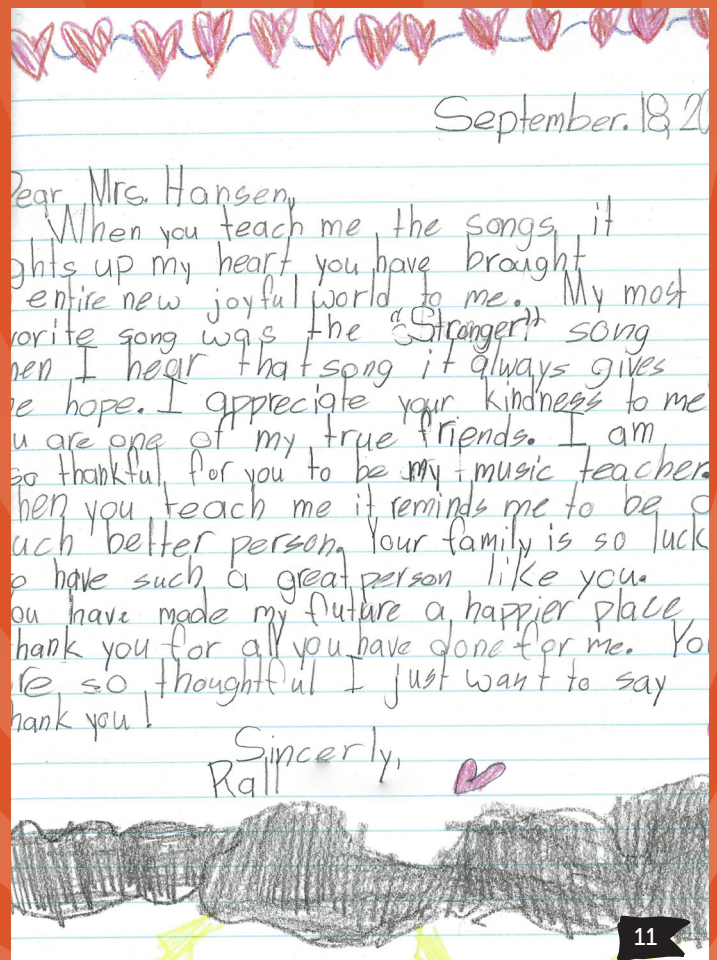 September. 18, 20
ear Mrs. Hansen,
When you teach me the songs it
ghts up my heart you have brought
entire new joyful world to me. My most
vorite song was the "Stronger" song
hen I hear that song it always gives
e hope. I appreciate your kindness to me
u are one of my true friends. I am
so thankful for you to be my music teacher.
hen you teach me it reminds me to be a
uch better person. Your family is so luck
o have such a great person like you.
ou have made my future a happier place
hank you for all you have done for me. Yo
re so thoughtful I just want to say
hank you!
Sincerly,
Rall
11